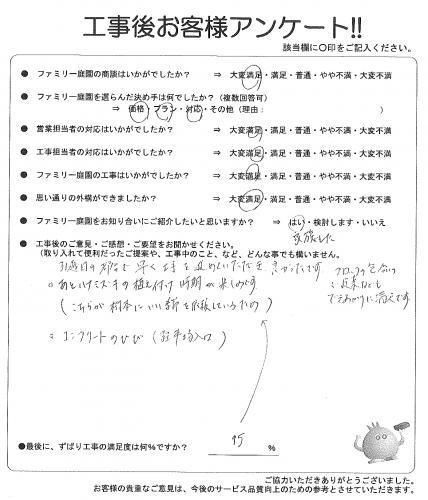 工事後お客様アンケート!!
該当欄に〇印をご記入ください。
● ファミリー庭園の商談はいかがでしたか? ⇒ 大変満足・満足・普通・やや不満・大変不満
● ファミリー庭園を選らんだ決め手は何でしたか?(複数回答可)
⇒ 価格・プラン・対応・その他(理由: )
● 営業担当者の対応はいかがでしたか? ⇒ 大変満足・満足・普通・やや不満・大変不満
● 工事担当者の対応はいかがでしたか? ⇒ 大変満足・満足・普通・やや不満・大変不満
● ファミリー庭園の工事はいかがでしたか? ⇒ 大変満足・満足・普通・やや不満・大変不満
● 思い通りの外構ができましたか? ⇒ 大変満足・満足・普通・やや不満・大変不満
● ファミリー庭園をお知り合いにご紹介したいと思いますか? ⇒ はい・検討します・いいえ
● 工事後のご意見・ご感想・ご要望をお聞かせください。
(取り入れて便利だったご提案や、工事中のこと、など、どんな事でも構いません。)
早く工事を進めていただき
の植え付け時期
(こちらが
コンクリートのひび(駐車場入口)
●最後に、ずばり工事の満足度は何%ですか? 95 %
ご協力いただきありがとうございました。
お客様の貴重なご意見は、今後のサービス品質向上のための参考とさせていただきます。